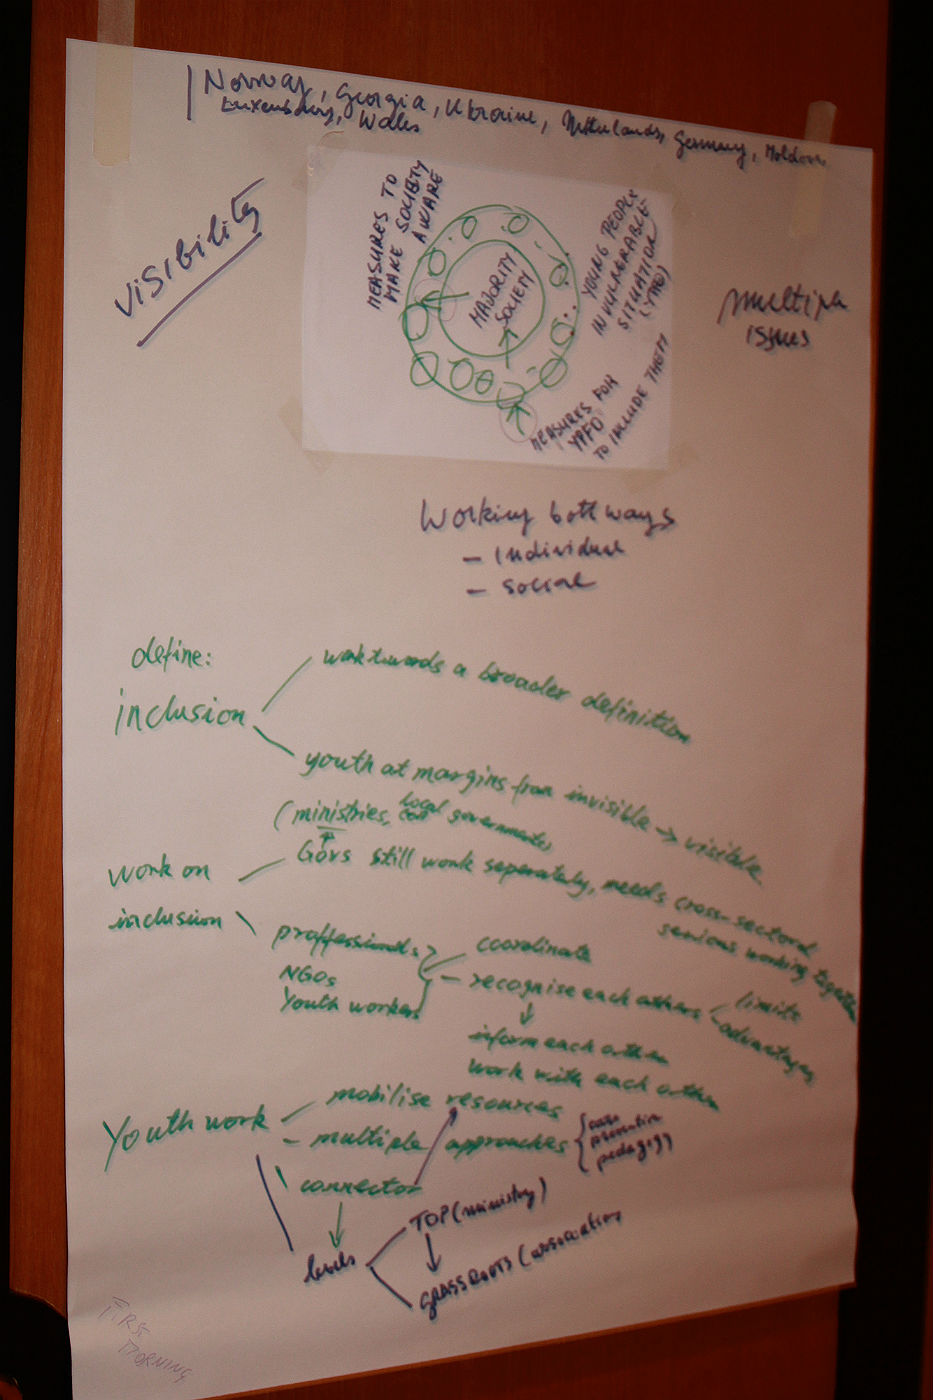 Norway, Georgia, Ukraine, Netherlands, Germany, Moldova
Luxembourg, Wales
VISIBILITY
MEASURES TO
MAKE SOCIETY
AWARE
MAJORITY
SOCIETY
YOUNG PEOPLE
IN VULNERABLE
SITUATION
MEASURES FOR
YPFO
TO INCLUDE THEM
multiple
issues
Working both ways
- Individual
- social
define:
inclusion
work towards a broader definition
youth at margins from invisible → visible
(ministries, local governments)
work on
inclusion
Govs still work separately, needs cross-sectoral
services working together
proffessionals
NGOs
Youth workers
coordinate
- recognise each others
limits
advantages
inform each other
work with each other
Youth work
mobilise resources
- multiple approaches
prevention
pedagogy
connector
levels
TOP (ministry)
GRASSROOTS (association
FIRST
MORNING